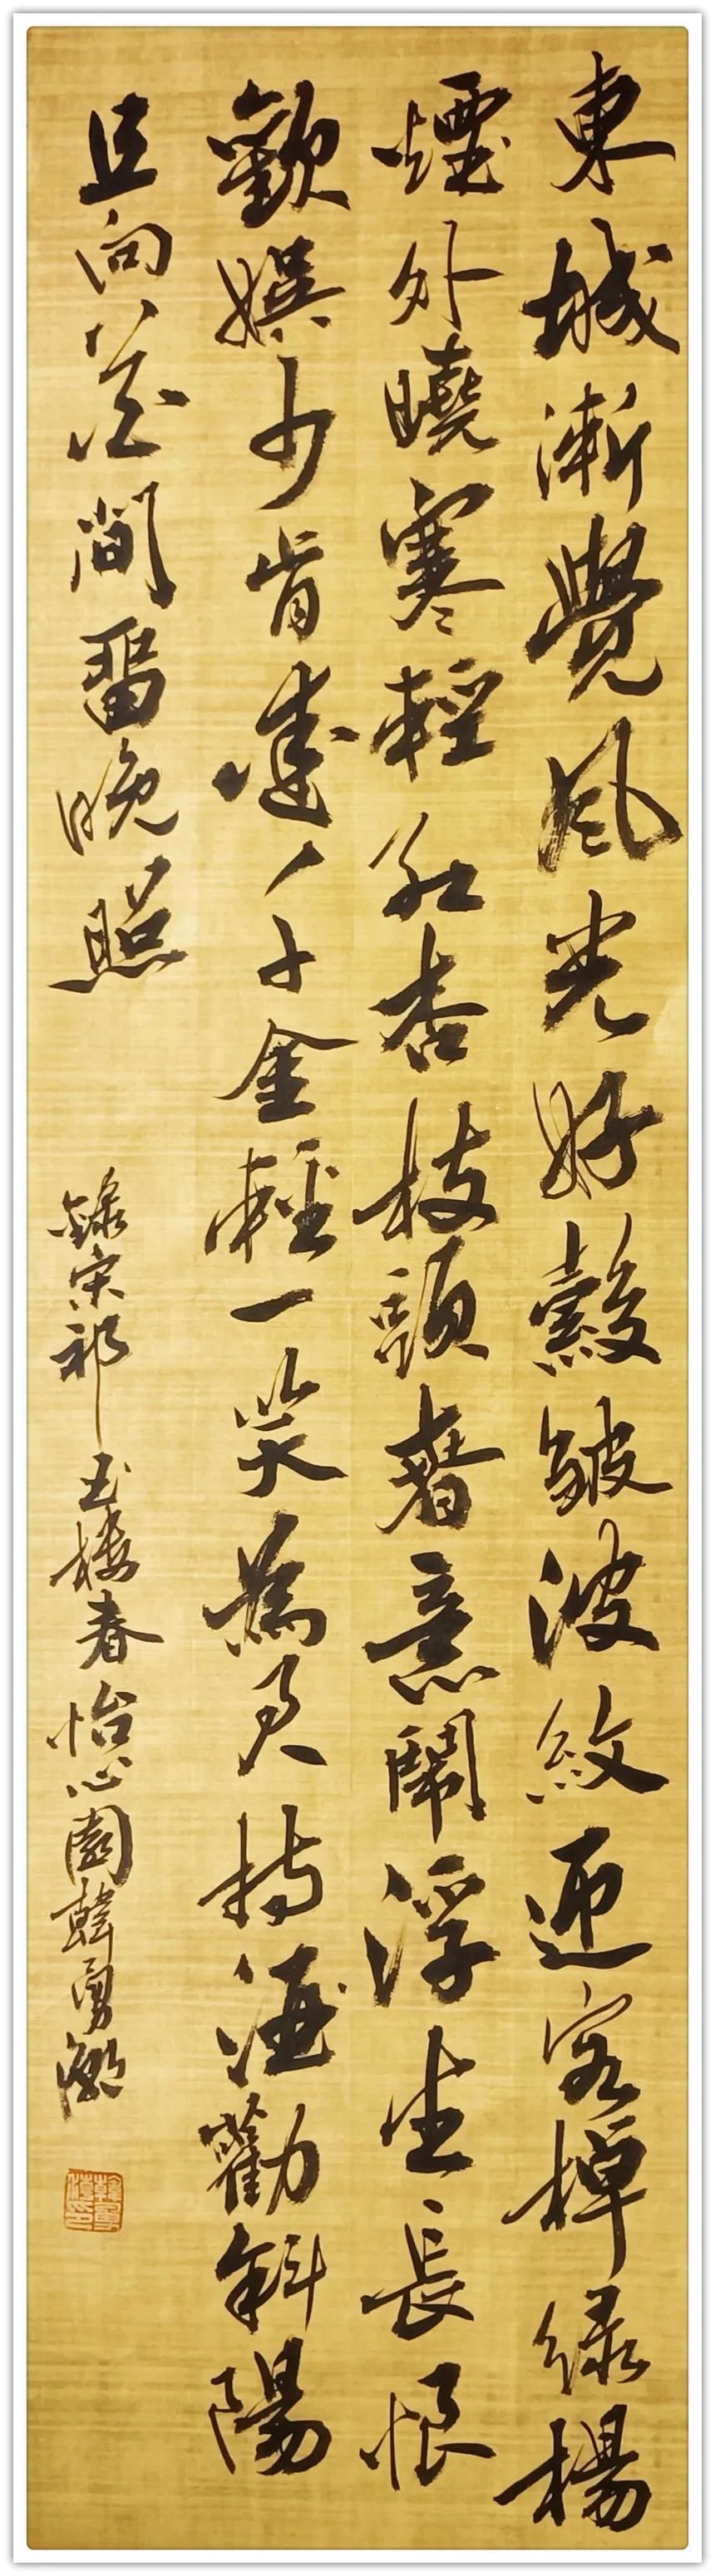 東城漸覺風光好縠皺波紋迎客棹綠楊
煙外曉寒輕紅杏枝頭春意鬧浮生長恨
歡娛少肯愛千金輕一笑為君持酒勸斜陽
且向花間留晚照
錄宋祁玉樓春怡心園韓勇